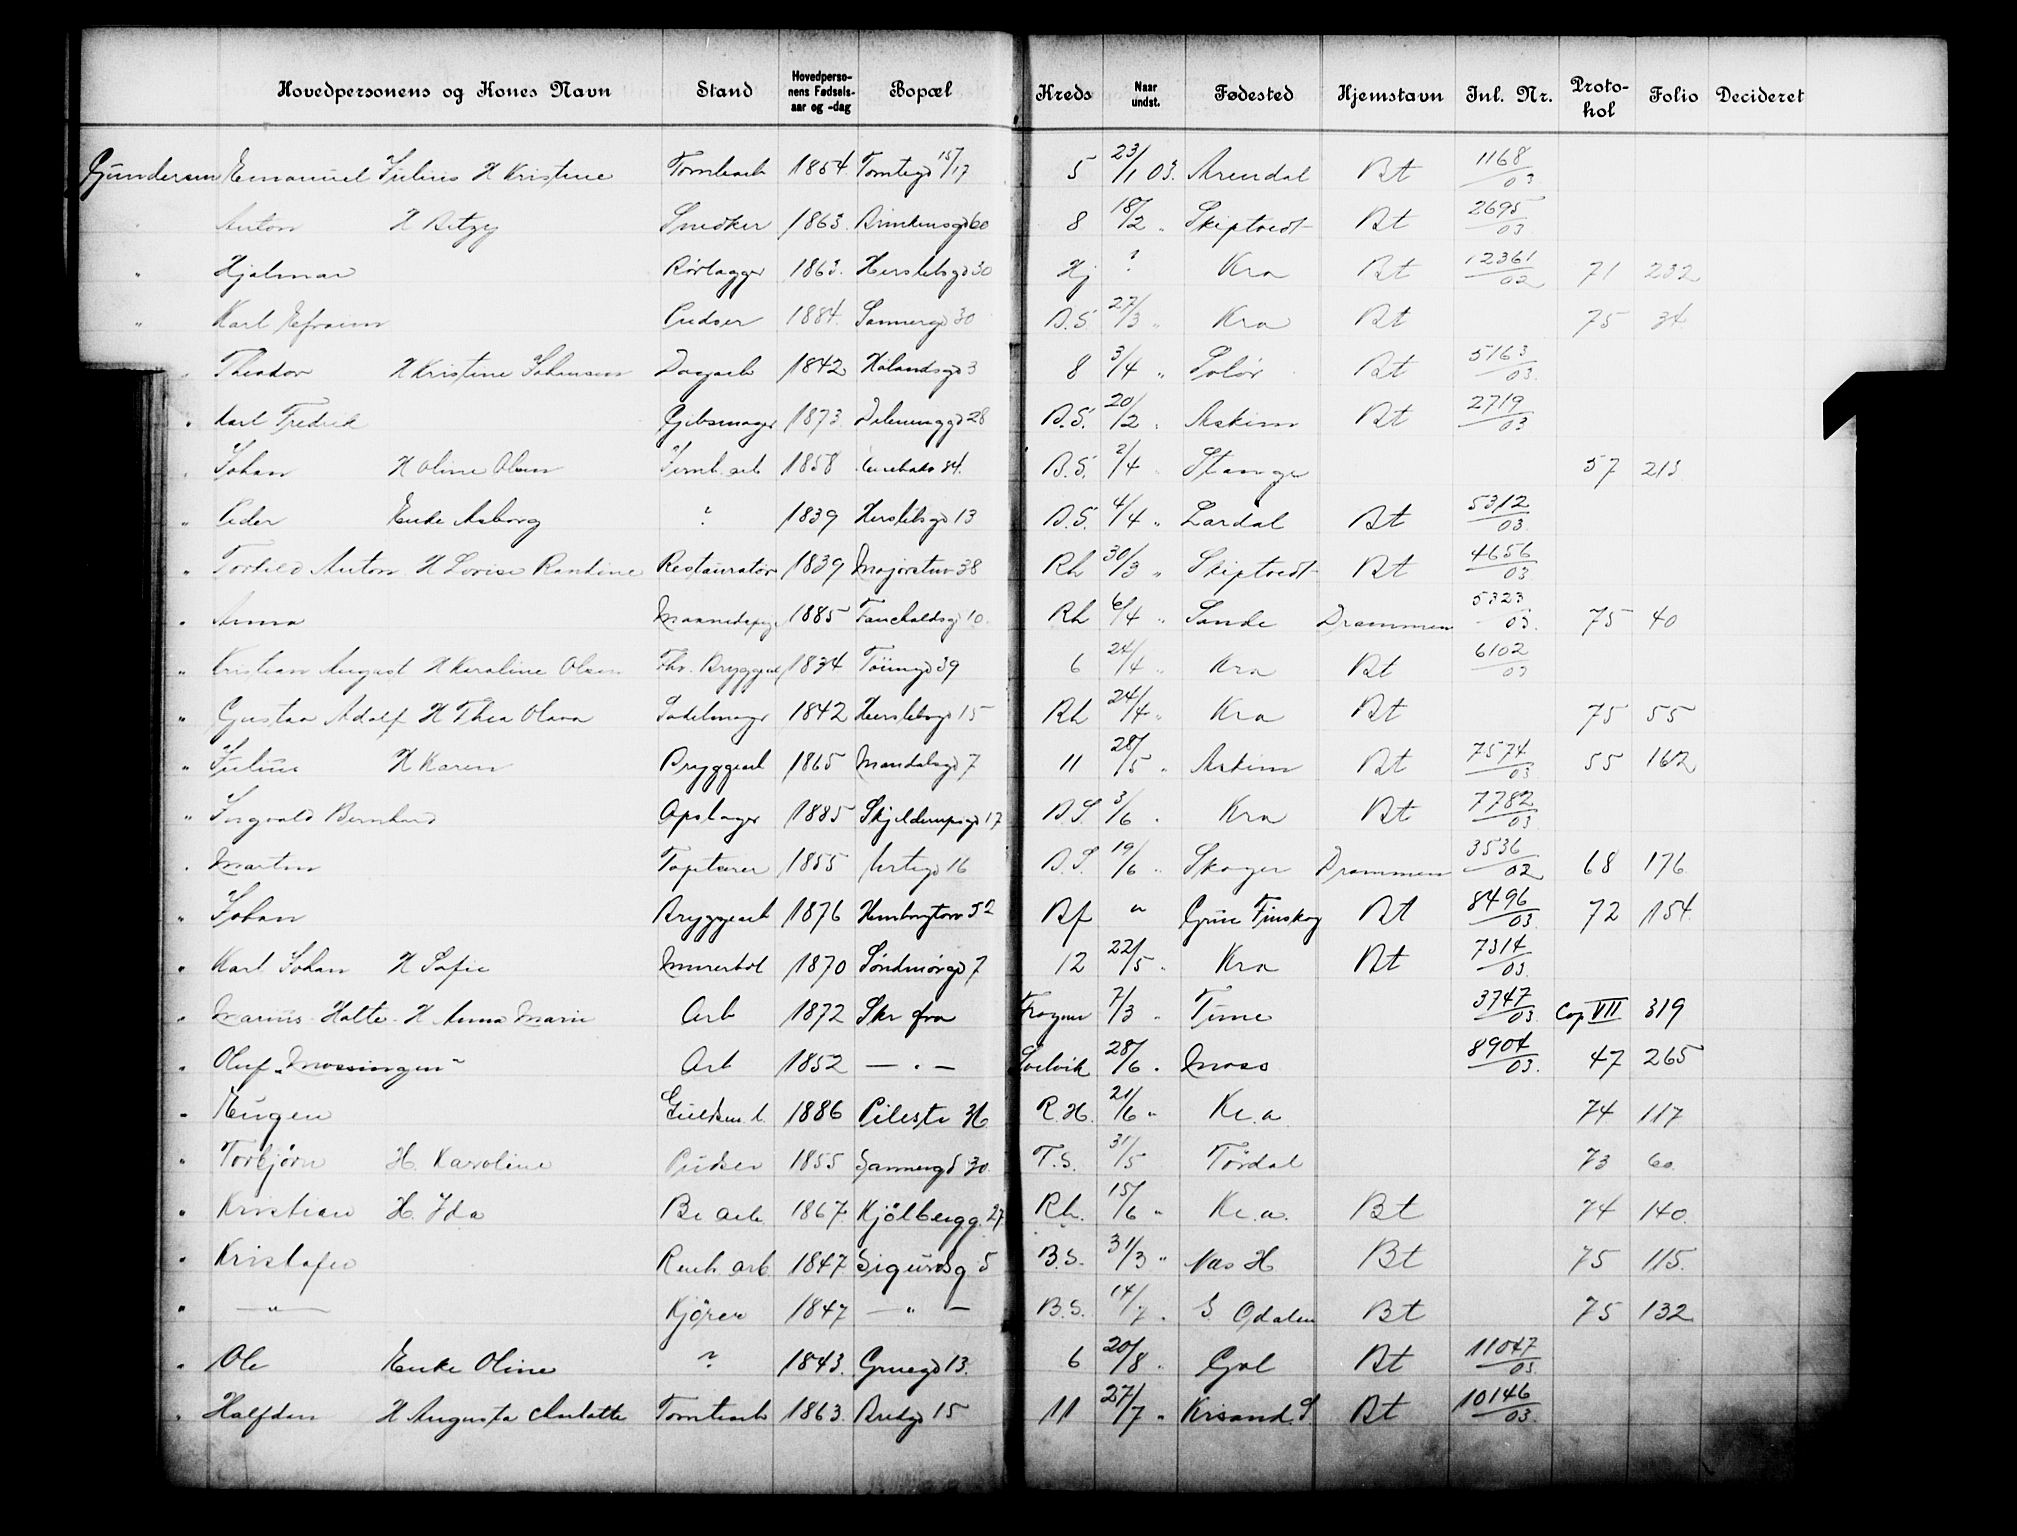 Hovedpersonens og Kones Navn Stand Hovedperso-nens Fødsels-aar og -dag Bopæl Kreds Naar undst. Fødested Hjemstavn Inl. Nr. Proto-kol Folio Decideret
Gundersen Emanuel Julius H Kristine Tomtearb 1854 Tomtegd 15/17 5 23/1 03. Arendal Bt 1168/03
" Anton H Betzy Snedker 1863. 60 8 18/2 " Skiptvedt Bt 2695/03
" Hjalmar Rørlægger 1863. Herslebsgd 30 Hj ? Kra Bt 12361/02 71 232
" Karl Efraim Pudser 1884. Sannergd 30 B.S. 27/3 " Kra Bt 75 34
" Theodor H Kristine Johansen Dagarb 1842 Hølandsgd 3 8 3/4 " Solør Bt 5163/03.
" Karl Fredrik Gibsmager 1873. Dælenenggd 28 B.S. 20/2 " Askim Bt 2719/03
" Johan H Oline Olsen Jernb. arb 1858 84. B.S. 2/4 " Stange 57 213.
" Peder Enke Asborg ? 1839 Herslebsgd 13 B.S. 4/4 " Lardal Bt 5312/03.
" Torkild Anton H Lovise Randine Restauratør 1839 Majorstuv 38 Rh 30/3 " Skiptvedt Bt 4656/03
" Anna Maanedspige 1885 Fauchaldsgd 10. Rh 6/4 " Sande Drammen 5323/03. 75 40
" Kristian August H Karoline Olsen Fhv. Bryggearb 1834 Tøiengd 39 6 24/4 " Kra Bt 6102/03
" Gustav Adolf H Thea Olava Sadelmager 1842 Herslebsgd 15 Rh 24/4 " Kra Bt 75 55
" Julius H Karen Bryggearb 1865 Mandalsgd 7 11 28/5 " Askim Bt 7574/03 55 162
" Ingvald Bernhard Opslager 1885 Skjelderupsgd 17 B.S 3/6 " Kra Bt 7782/03
" Martin Tapetserer 1855 Urtegd 16 B.S. 19/6 " Skoger Drammen 3536/02 68 176
" Johan Bryggearb 1876 52 Bf " Grue Finskog Bt 8496/03. 72 154
" Karl Johan H Sofie Murerbet 1870 Søndmørgd 7 12 22/5 " Kra Bt 7314/03.
" Marius Holte H Anna Marie Arb 1872 Skr fra Frogner 7/3 " Time 3747/03. Cop VII 319
" Oluf „Mossingen“ Arb 1852 — " — Svelvik 28/6 " Moss 8904/03. 47 265
" Eugen Guldsm. l. 1886 Pilestr H. R.H. 21/6 " Kr.a. 74 117
" Torbjørn H. Karoline Pudser 1855 Sannergd 30 T.S. 31/5 Tørdal 73 60.
" Kristian H. Ida Br arb. 1867. Kjølbergg. 27 Rh. 15/6 " Kr.a. Bt 74 140.
" Kristofer Renh. arb. 1847. Sigurdsg 5 B.S. 31/3 " Næs H Bt 75 115.
" —"— Kjører 1847 —"— B.S. 14/7 " S. Odalen Bt 75 132
" Ole Enke Oline ? 1843. Gruegd 13. 6 20/8 " Gol Bt 11047/03.
" Halfdan H Augusta Charlotte Tomtearb 1863. Bredgd 15 11 27/7 " Krisand. S. Bt 10146/03.